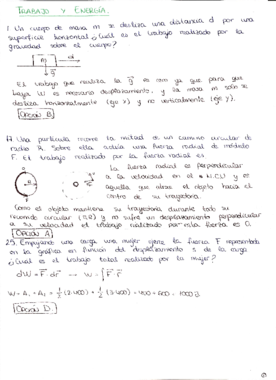 TRABAJO Y ENERGÍA.
1 Un cuerpo de masa m se desliza una distancia d por una
superficie horizontal ¿Cuál es el trabajo realizado por la
gravedad sobre el cuerpo?
m
d
El trabajo que realiza la es 0 ya que para que
haya W es necesario desplazamiento, y la masa m solo se
desliza horizontalmente (eje x) y no verticalmente (eje y).
OPCIÓN B
Una partícula recorre la mitad de un camino circular de
radio R. Sobre ella actúa una fuerza radial de módulo
F. El trabajo realizado por la fuerza radial es
la fuerza radial es perpendicular
a la velocidad en el MCU y es
aquella que atrae el objeto hacia el
centro de su trayectoria.
Como el objeto mantiene su trayectoria durante todo su
recorrido circular y no sufre un desplazamiento perpendicular
a su velocidad el trabajo realizado por esta fuerza es 0.
OPCIÓN A
25. Empujando una carga una mujer ejerce la fuerza F representada
en la gráfica en función del desplazamiento s de la carga
¿Cuál es el trabajo total realizado por la mujer?
OPCIÓN D